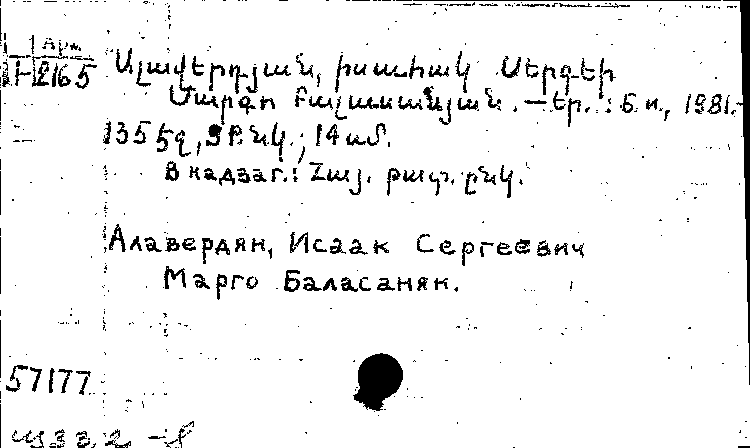 1 Арм
1-2165
Ալավերդյան, Իսահակ Սերգեի
Մարգո Բալասանյան. — Եր. : Б. и., 1981.-
135 էջ, ; 14 սմ.
В надзаг.: Հայ. թատ. ընկ.
Алавердян, Исаак Сергеевич
Марго Баласанян.
57177